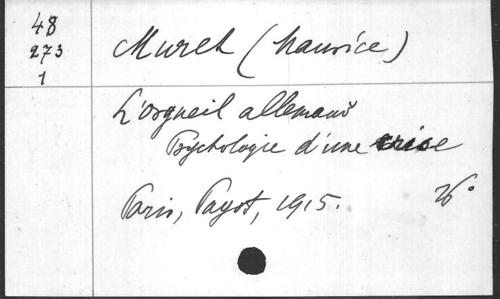 48
273
1
Muret (Maurice)
L'orgueil allemand
Psychologie d'une crise
Paris, Payot, 1915.